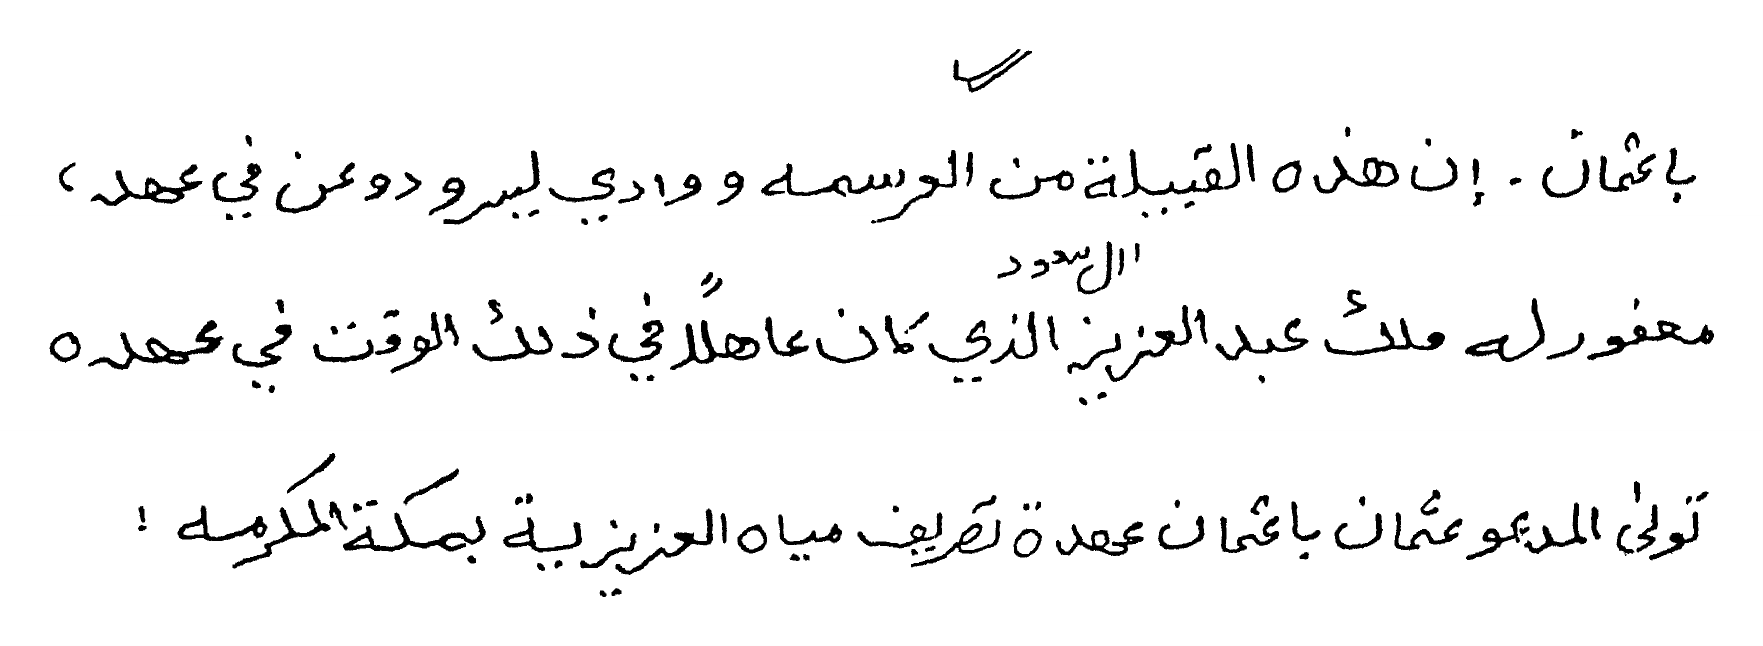 باعثمان . إن هذه القبيلة من الرسمه و وادي ليسر و دوعن في عهد ،
ال سعود
مغفور له ملك عبد العزيز الذي كان عاهلاً في ذلك الوقت في عهده
تولى المدعو عثمان باعثمان عهدة تصريف مياه العزيزية بمكة المكرمه !